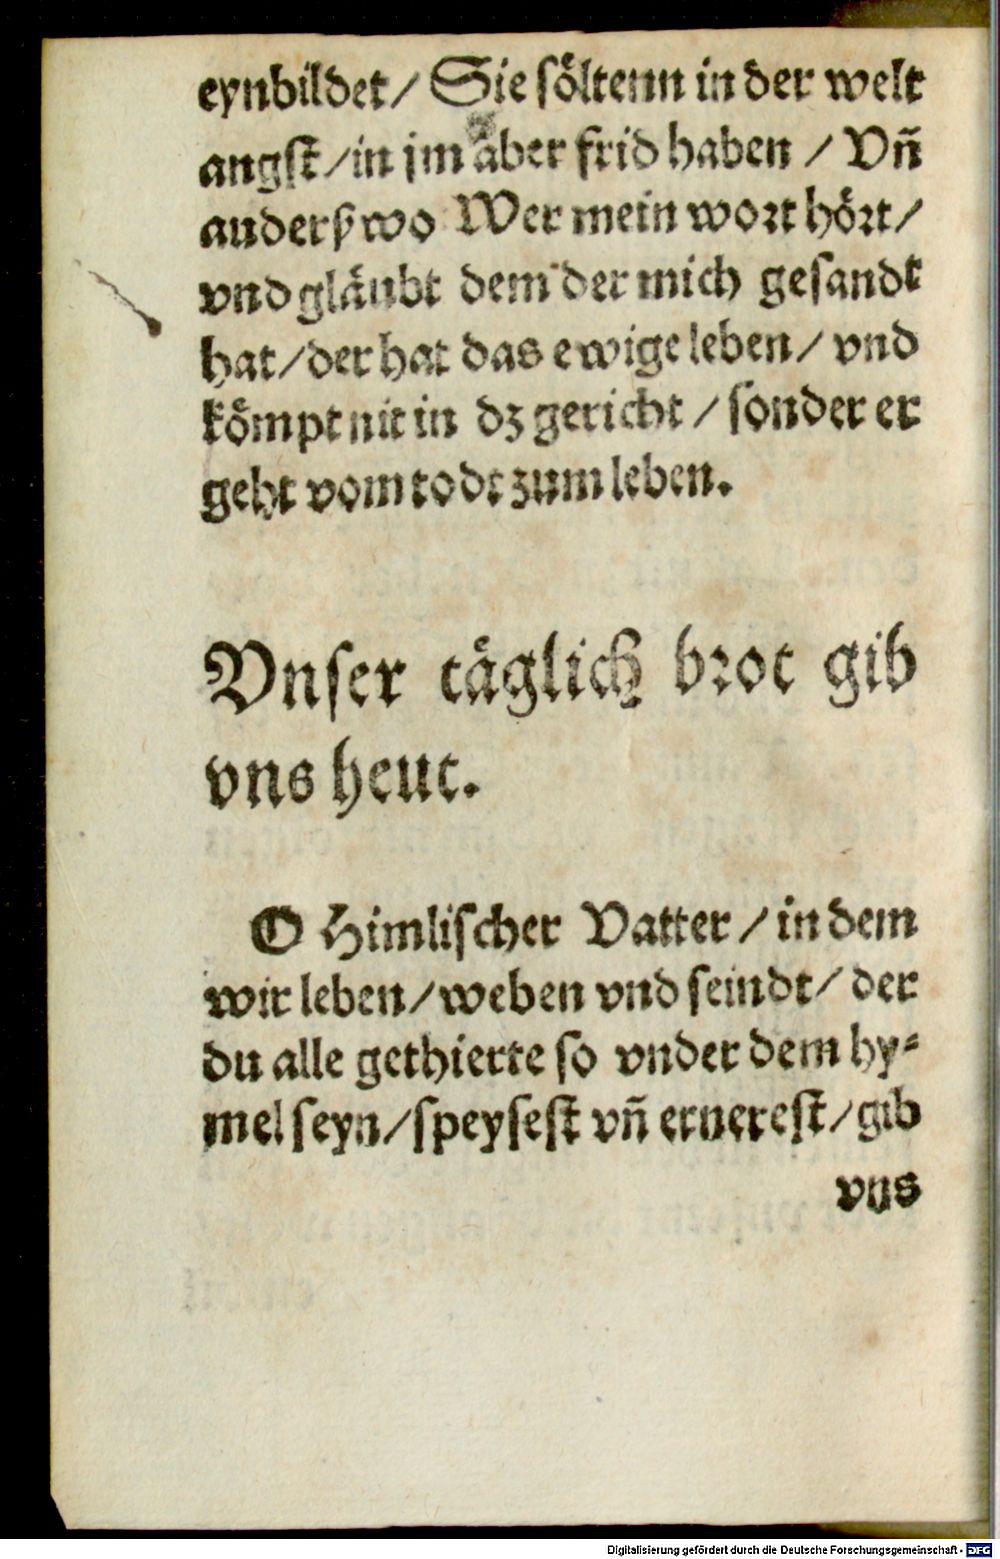 eynbildet / Sie söltenn in der welt
angst / in jm aber frid haben / Vñ
anderßwo Wer mein wort hört /
vnd gläubt dem der mich gesandt
hat / der hat das ewige leben / vnd
kömpt nit in dz gericht / sonder er
geht vom todt zum leben.
Vnser täglich brot gib
vns heut.
O Himlischer Vatter / in dem
wir leben / weben vnd seindt / der
du alle gethierte so vnder dem hy-
mel seyn / speysest vñ ernerest / gib
vns
Digitalisierung gefördert durch die Deutsche Forschungsgemeinschaft - DFG